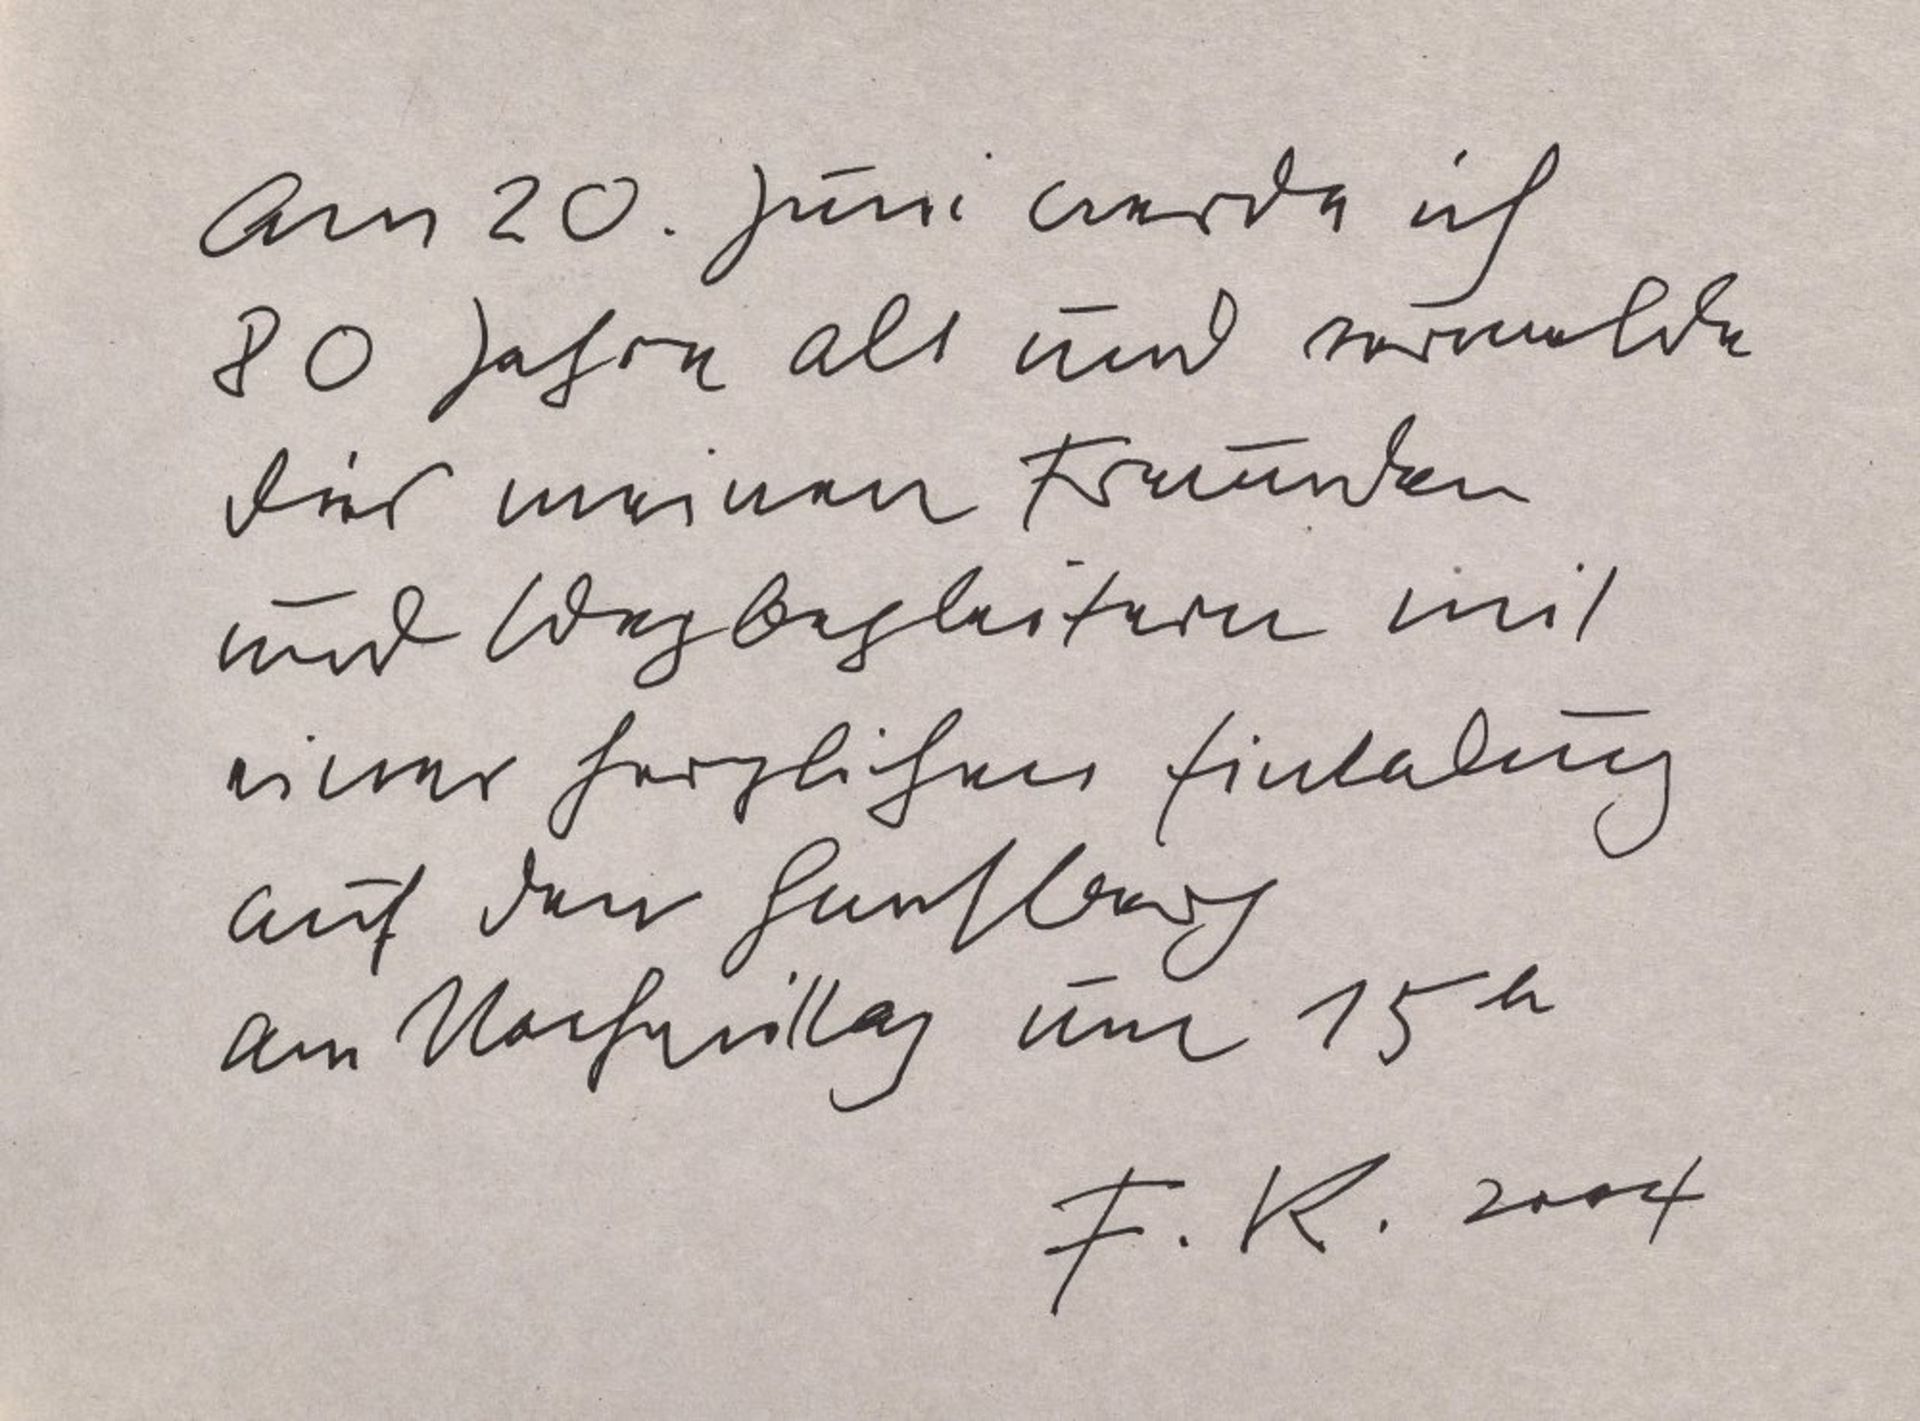 Am 20. Juni werde ich
80 Jahre alt und vermelde
dies meinen Freunden
und Wegbegleitern mit
einer herzlichen Einladung
auf den Ganslberg
am Nachmittag um 15 h
F. K. 2004